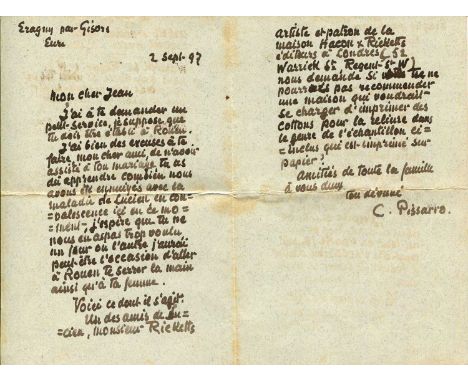 Eragny par Gisors
Eure
2 Sept. 97
Mon cher Jean
J'ai à te demander un
petit service, je suppose que
tu dois être établi à Rouen.
J'ai bien des excuses à te
faire mon cher ami, de n'avoir
assisté à ton mariage, tu as
dû apprendre combien nous
avons été ennuyés avec la
maladie de Lucien en con=
=valescence ici en ce mo=
=ment, j'espère que tu ne
nous en as pas trop voulu
un jour ou l'autre j'aurai
peut-être l'occasion d'aller
à Rouen te serrer la main
ainsi qu'à ta femme.
Voici ce dont il s'agit.
Un des amis de Lu=
=cien, monsieur Ricketts
artiste et patron de la
maison Hacon & Ricketts
éditeurs à Londres (52
Warwick St Regent St W)
nous demande si tu ne
pourrais pas recommander
une maison qui voudrait
se charger d'imprimer des
cottons pour la reliure dans
le genre de l'échantillon ci=
=inclus qui est imprimé sur
papier?
Amitiés de toute la famille
à vous deux
ton dévoué
C. Pissarro